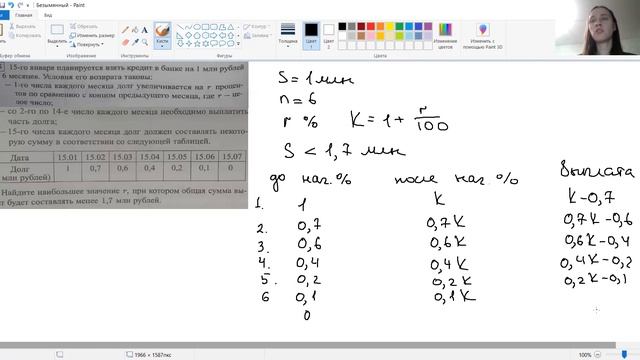 Безымянный - Paint
Вырезать
Копировать
Обрезать
Изменить размер
Повернуть
Кисти
Контур
Заливка
Толщина
Цвет 1
Цвет 2
Изменение цветов
Изменить с помощью Paint 3D
Буфер обмена
Изображение
Инструменты
Фигуры
Цвета
15-го января планируется взять кредит в банке на 1 млн рублей
6 месяцев. Условия его возврата таковы:
— 1-го числа каждого месяца долг увеличивается на r процен-
тов по сравнению с концом предыдущего месяца, где r — це-
лое число;
— со 2-го по 14-е число каждого месяца необходимо выплатить
часть долга;
— 15-го числа каждого месяца долг должен составлять некото-
рую сумму в соответствии со следующей таблицей.
Дата 15.01 15.02 15.03 15.04 15.05 15.06 15.07
Долг
млн рублей) 1 0,7 0,6 0,4 0,2 0,1 0
Найдите наибольшее значение r, при котором общая сумма вы-
т будет составлять менее 1,7 млн рублей.
S = 1 млн
n = 6
r % K = 1 + r/100
S < 1,7 млн
до наг. % после наг. % Выплата
1. 1 K K - 0,7
2. 0,7 0,7K 0,7K - 0,6
3. 0,6 0,6K 0,6K - 0,4
4. 0,4 0,4K 0,4K - 0,2
5. 0,2 0,2K 0,2K - 0,1
6 0,1 0,1K
0
1966 × 1587пкс
100%